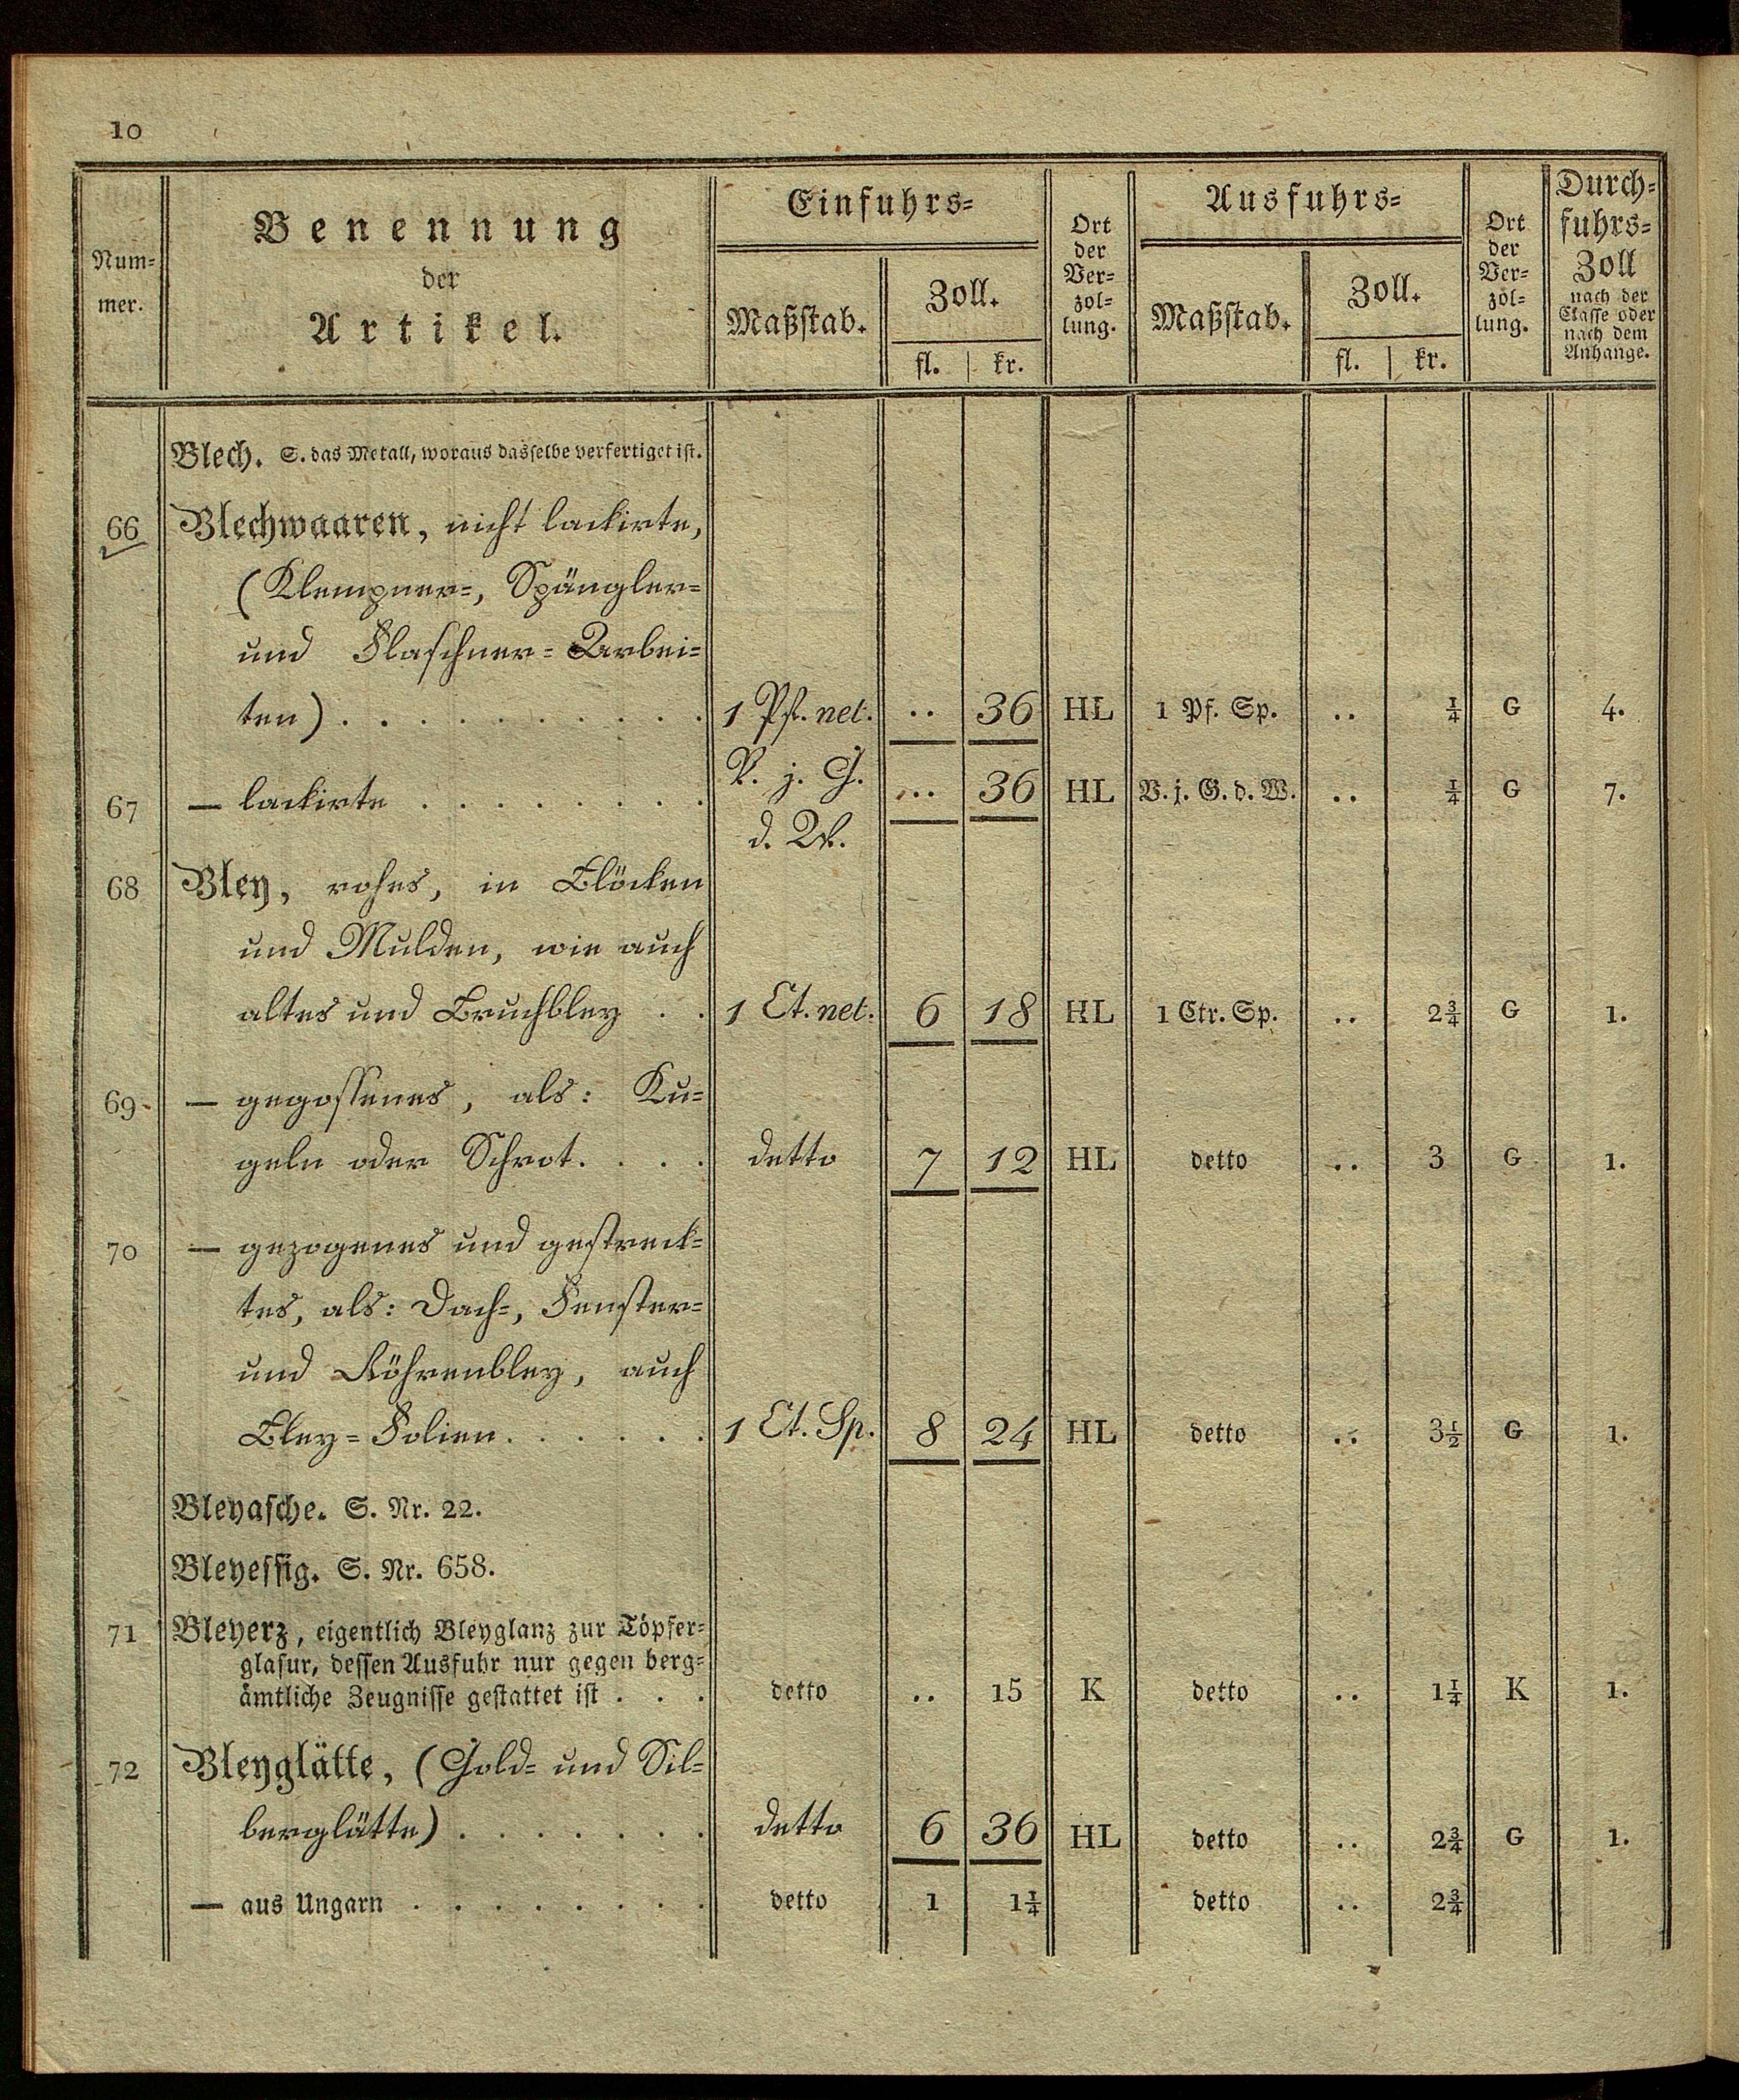 10
Num-
mer.
Benennung
der
Artikel.
Einfuhrs-
Maßstab.
Zoll.
fl. kr.
Ort
der
Ver-
zol-
lung.
Ausfuhrs-
Maßstab.
Zoll.
fl. kr.
Ort
der
Ver-
zol-
lung.
Durch-
fuhrs-
Zoll
nach der
Classe oder
nach dem
Anhange.
Blech. S. das Metall, woraus dasselbe verfertiget ist.
66 Blechwaaren, nicht lackirte,
(Klempner-, Spängler-
und Flaschner-Arbei-
ten) . . . . . . . . . . 1 Pf. net. .. 36 HL 1 Pf. Sp. .. ¼ G 4.
67 — lackirte . . . . . . . . V. j. G. d. W. ... 36 HL V. j. G. d. W. .. ¼ G 7.
68 Bley, rohes, in Blöcken
und Mulden, wie auch
altes und Bruchbley . . 1 Ct. net. 6 18 HL 1 Ctr. Sp. .. 2¾ G 1.
69 — gegossenes, als: Ku-
geln oder Schrot. . . . detto 7 12 HL detto .. 3 G 1.
70 — gezogenes und gestreck-
tes, als: Dach-, Fenster-
und Röhrenbley, auch
Bley-Folien. . . . . . 1 Ct. Sp. 8 24 HL detto .. 3½ G 1.
Bleyasche. S. Nr. 22.
Bleyessig. S. Nr. 658.
71 Bleyerz, eigentlich Bleyglanz zur Töpfer-
glasur, dessen Ausfuhr nur gegen berg-
ämtliche Zeugnisse gestattet ist . . . detto .. 15 K detto .. 1¼ K 1.
72 Bleyglätte, (Gold- und Sil-
berglätte) . . . . . . . detto 6 36 HL detto .. 2¾ G 1.
— aus Ungarn . . . . . . . . detto 1 1¼ detto .. 2¾